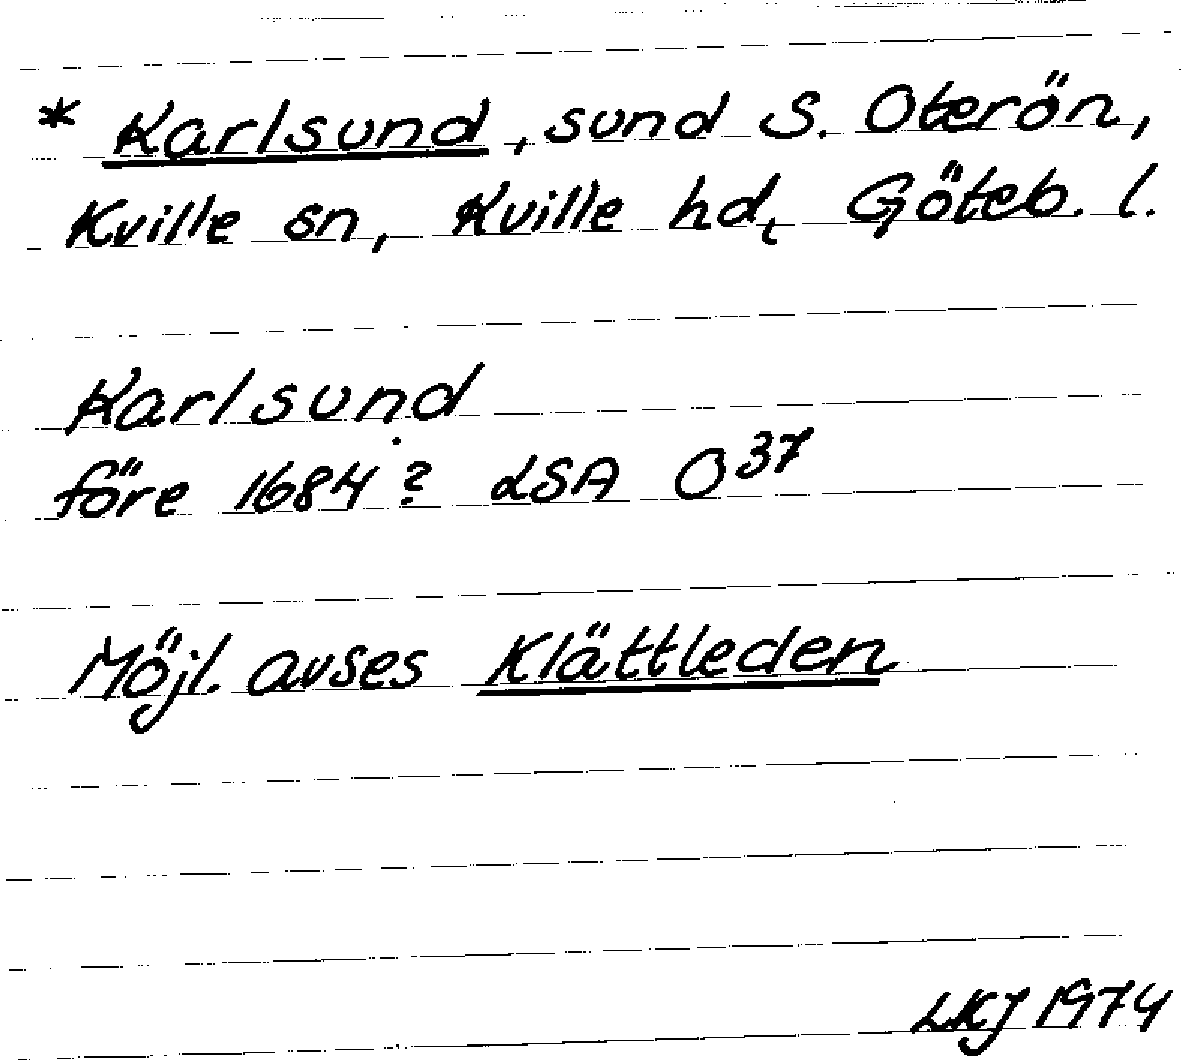 * Karlsund, sund S. Oterön,
Kville sn, Kville hd, Göteb. l.
Karlsund
före 1684? LSA O 37
Möjl. avses Klättleden
LKJ 1974